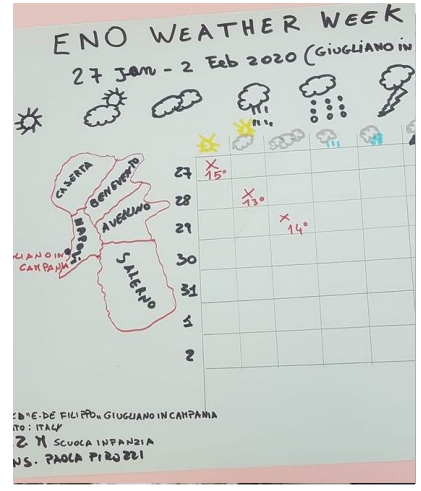 ENO WEATHER WEEK
27 Jan - 2 Feb 2020 (GIUGLIANO IN
CASERTA
BENEVENTO
AVELLINO
NAPOLI
SALERNO
LIANO IN
CAMPANIA
27 X 15°
28 X 13°
29 X 14°
30
31
1
2
"E. DE FILIPPO" GIUGLIANO IN CAMPANIA
TO: ITALY
2 M SCUOLA INFANZIA
NS. PAOLA PIROZZI